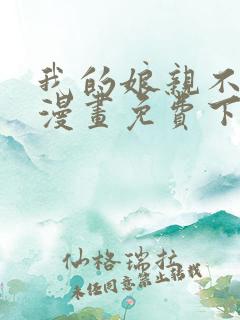 我的娘親不
漫畫免費下
仙格瑞拉
未经同意禁止转载